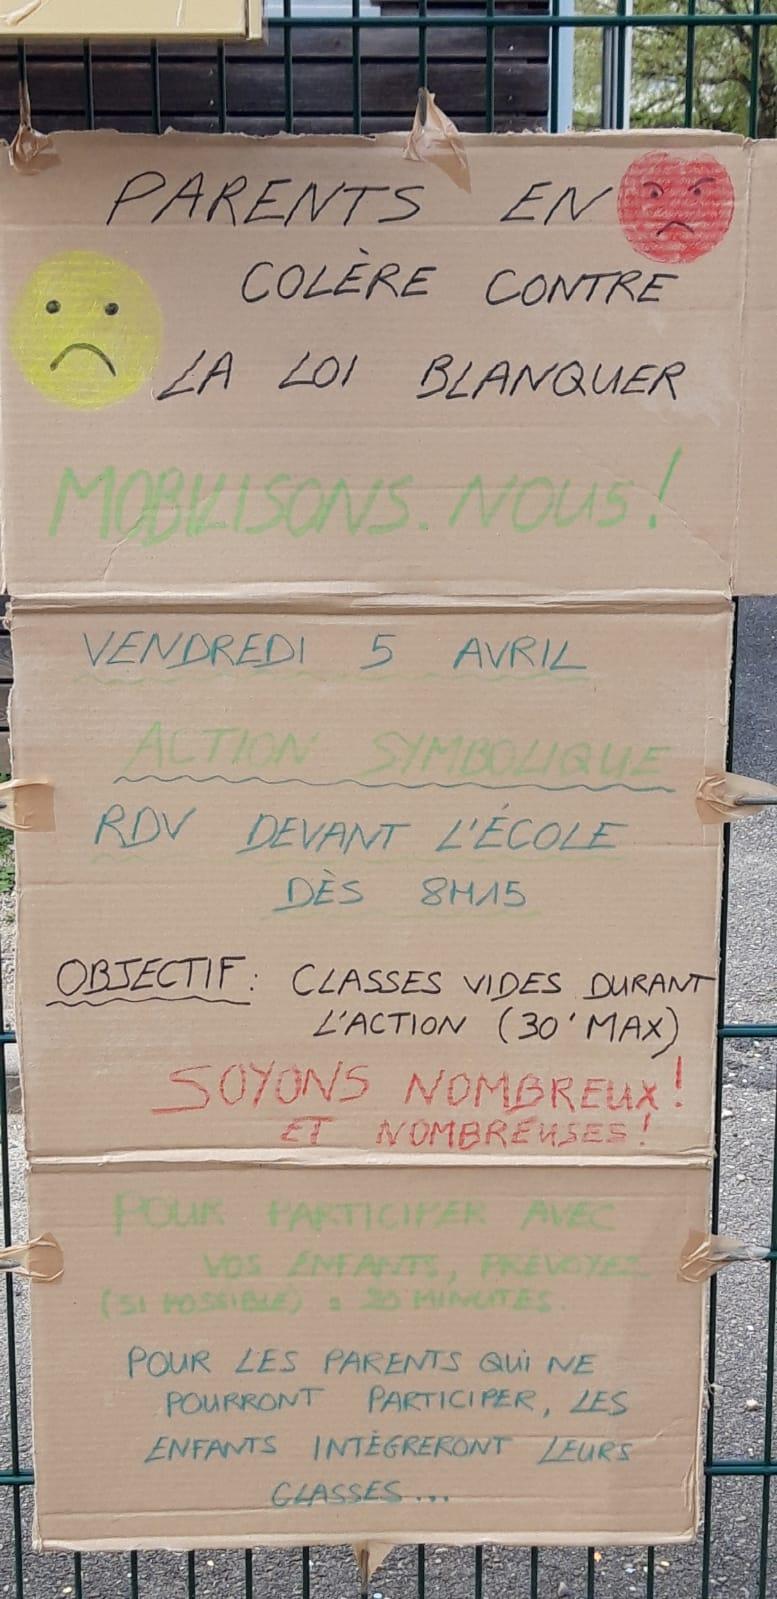 PARENTS EN
COLÈRE CONTRE
LA LOI BLANQUER
MOBILISONS-NOUS!
VENDREDI 5 AVRIL
ACTION SYMBOLIQUE
RDV DEVANT L'ÉCOLE
DÈS 8H15
OBJECTIF: CLASSES VIDES DURANT
L'ACTION (30' MAX)
SOYONS NOMBREUX!
ET NOMBREUSES!
POUR PARTICIPER AVEC
VOS ENFANTS, PRÉVOYEZ
(SI POSSIBLE) : MINUTES.
POUR LES PARENTS QUI NE
POURRONT PARTICIPER, LES
ENFANTS INTÈGRERONT LEURS
CLASSES...